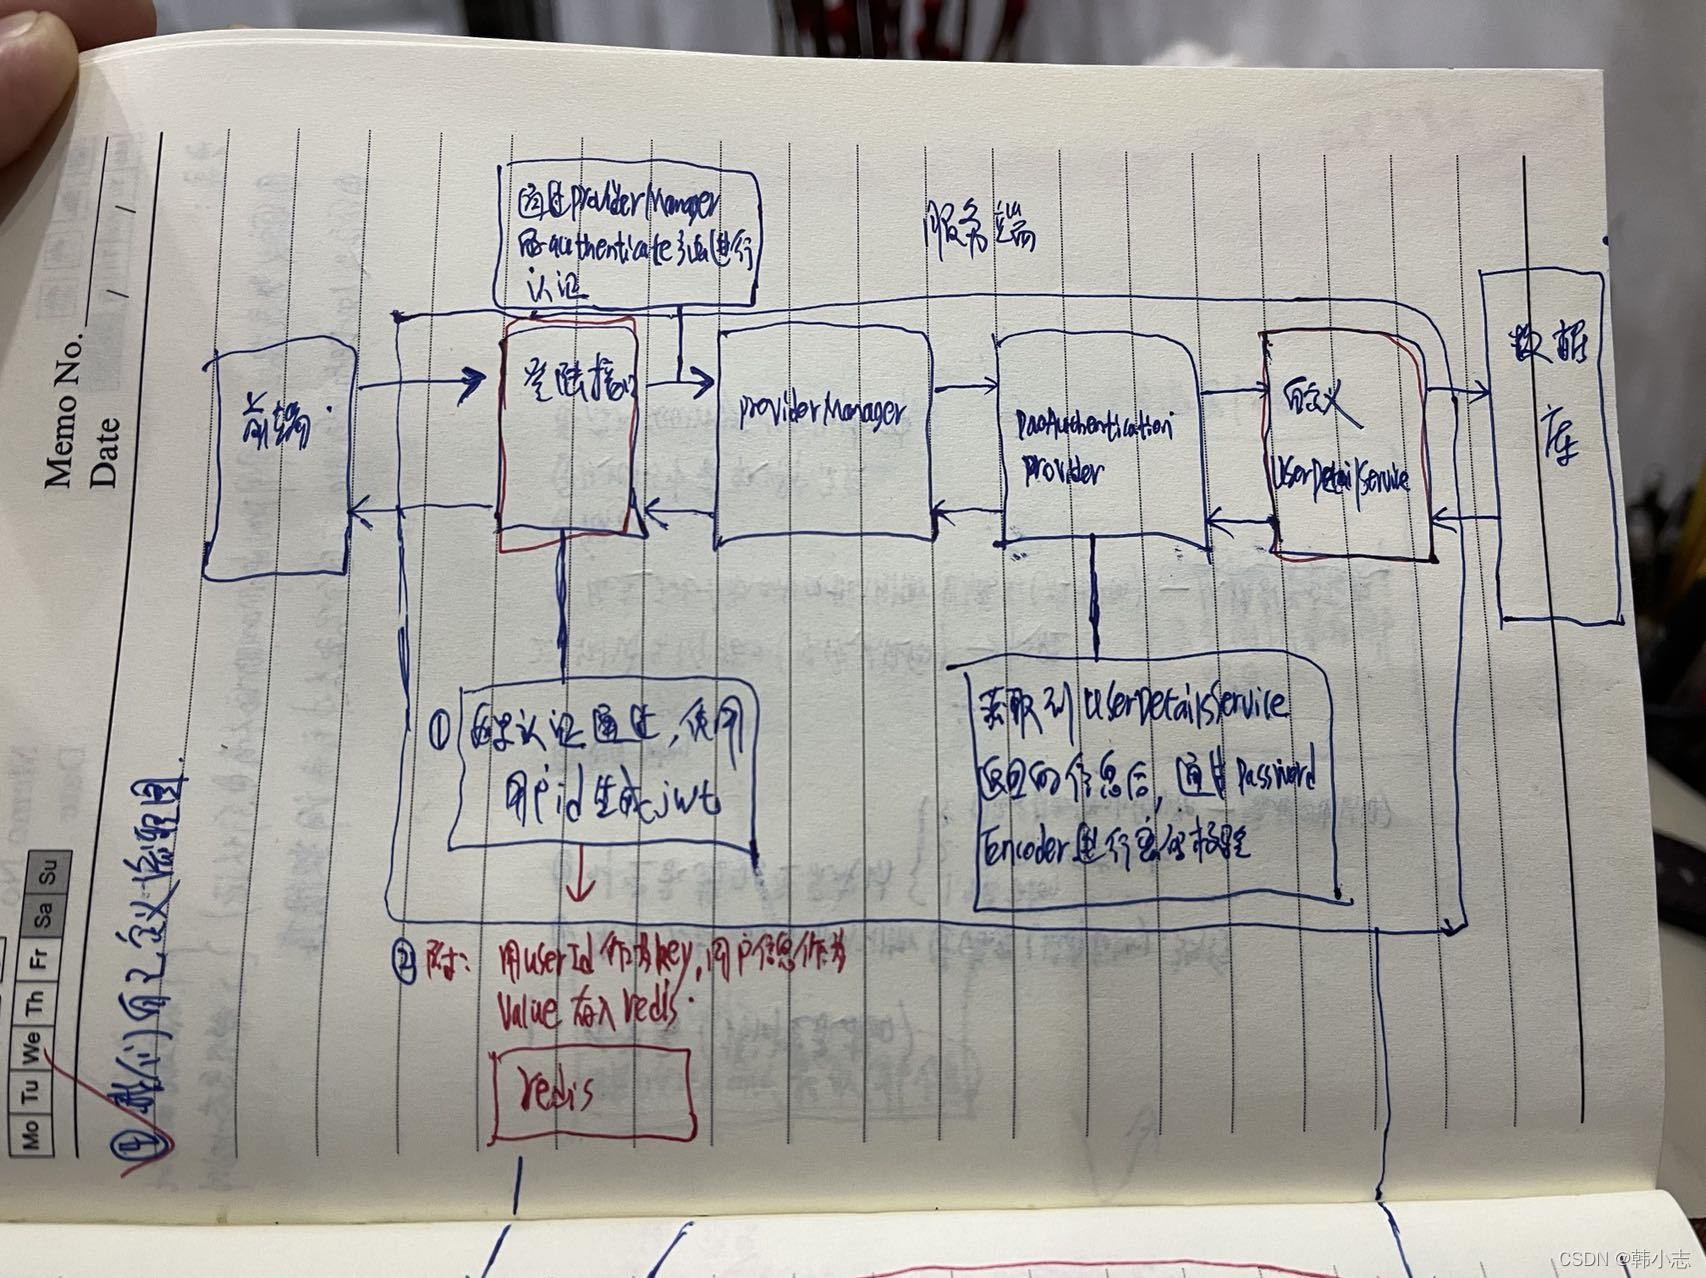 Memo No.
Date / /
Mo Tu We Th Fr Sa Su
④ 我们自定义流程图.
服务端
通过ProviderManager
的authenticate方法进行
认证
前端.
登陆接口
ProviderManager
DaoAuthentication
Provider
自定义
UserDetailService
数据
库
① 如果认证通过,使用
用户id生成jwt
获取到UserDetailsService
返回的信息后,通过Password
Encoder进行密码校验
② 用userId作为key,用户信息作为
Value存入redis.
redis
CSDN @韩小志